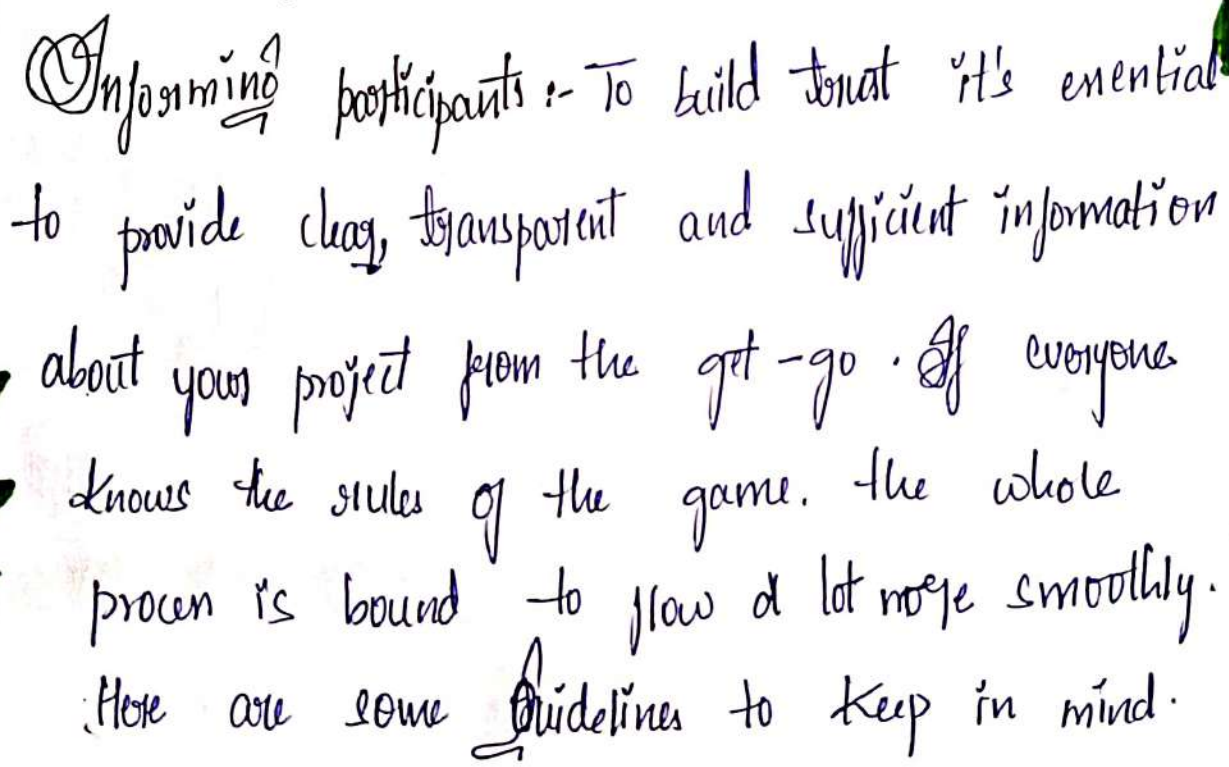 Informing participants :- To build trust it's essential
to provide clear, transparent and sufficient information
about your project from the get-go. If everyone
knows the rules of the game. the whole
process is bound to flow a lot more smoothly.
Here are some Guidelines to keep in mind.